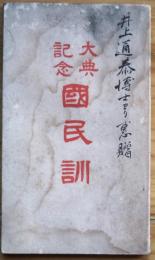 井上通泰博士ヨリ恵贈
大典
記念
國民訓